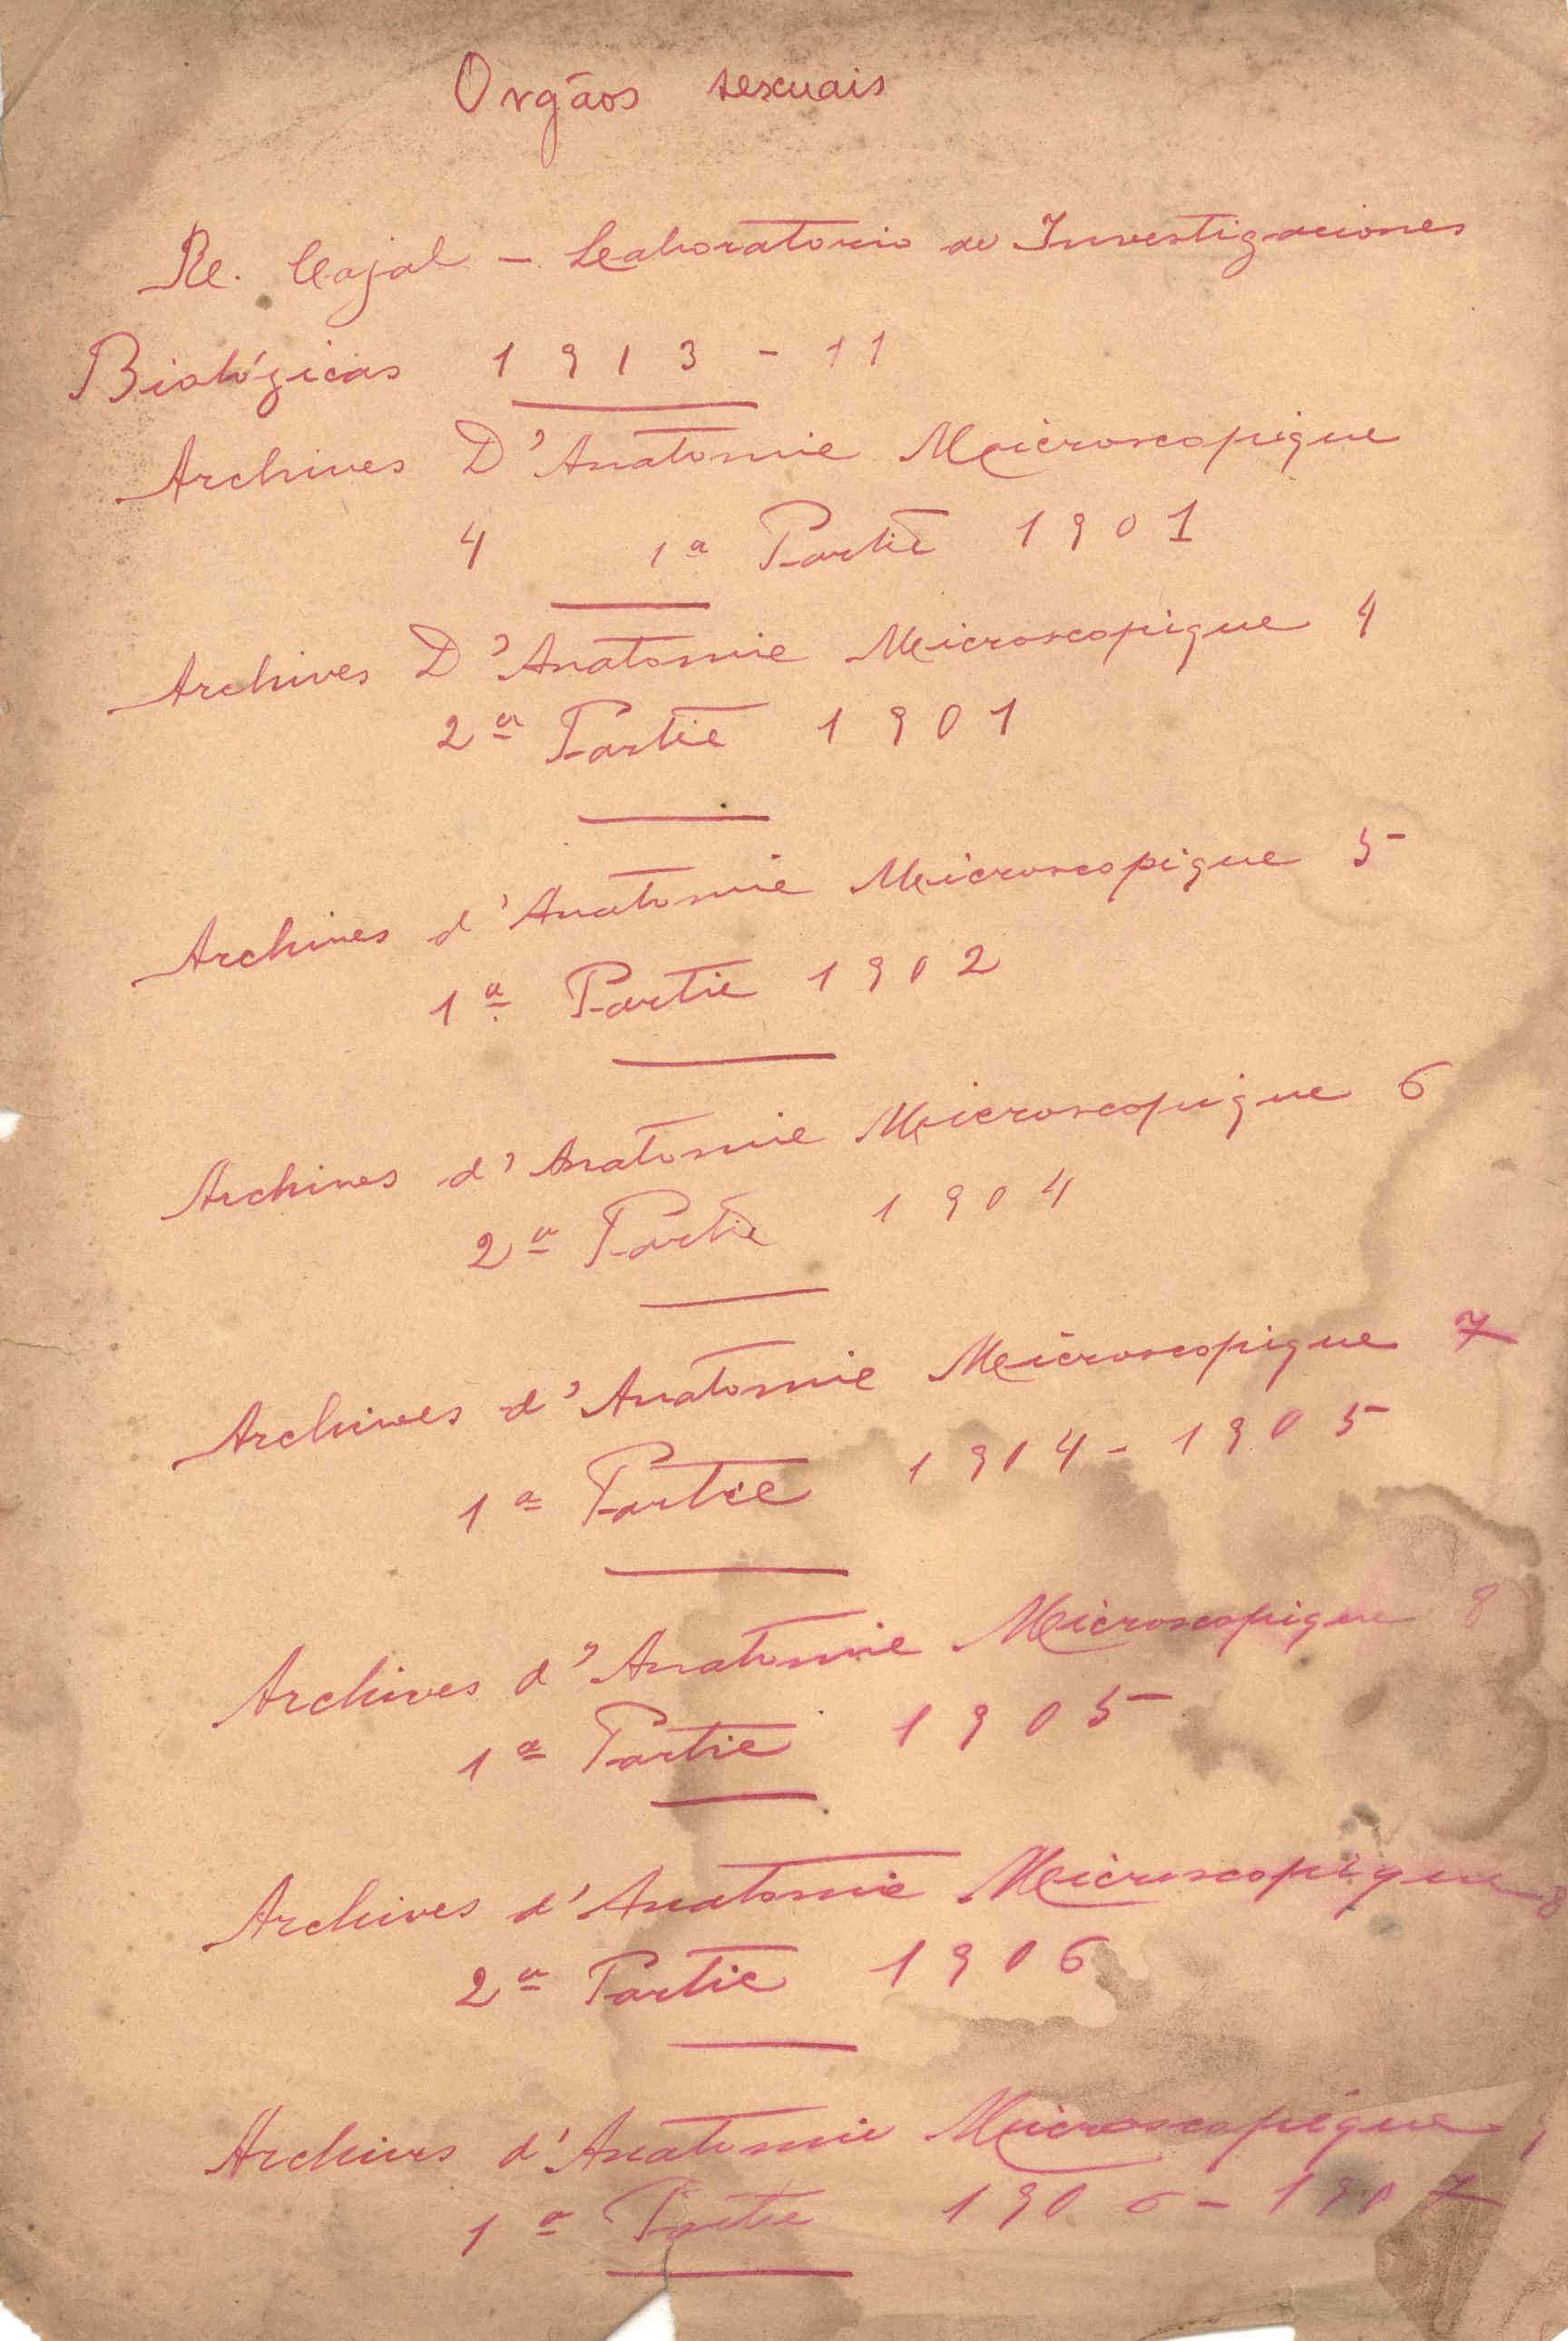 Orgãos sexuais
R. Cajal - Laboratorio de Investigaciones
Biológicas 1913 - 11
Archives D'Anatomie Microscopique
4 1ª Partie 1901
Archives D'Anatomie Microscopique 4
2ª Partie 1901
Archives d'Anatomie Microscopique 5
1ª Partie 1902
Archives d'Anatomie Microscopique 6
2ª Partie 1904
Archives d'Anatomie Microscopique 7
1ª Partie 1904-1905
Archives d'Anatomie Microscopique 8
1ª Partie 1905
Archives d'Anatomie Microscopique 8
2ª Partie 1906
Archives d'Anatomie Microscopique 9
1ª Partie 1906-1907